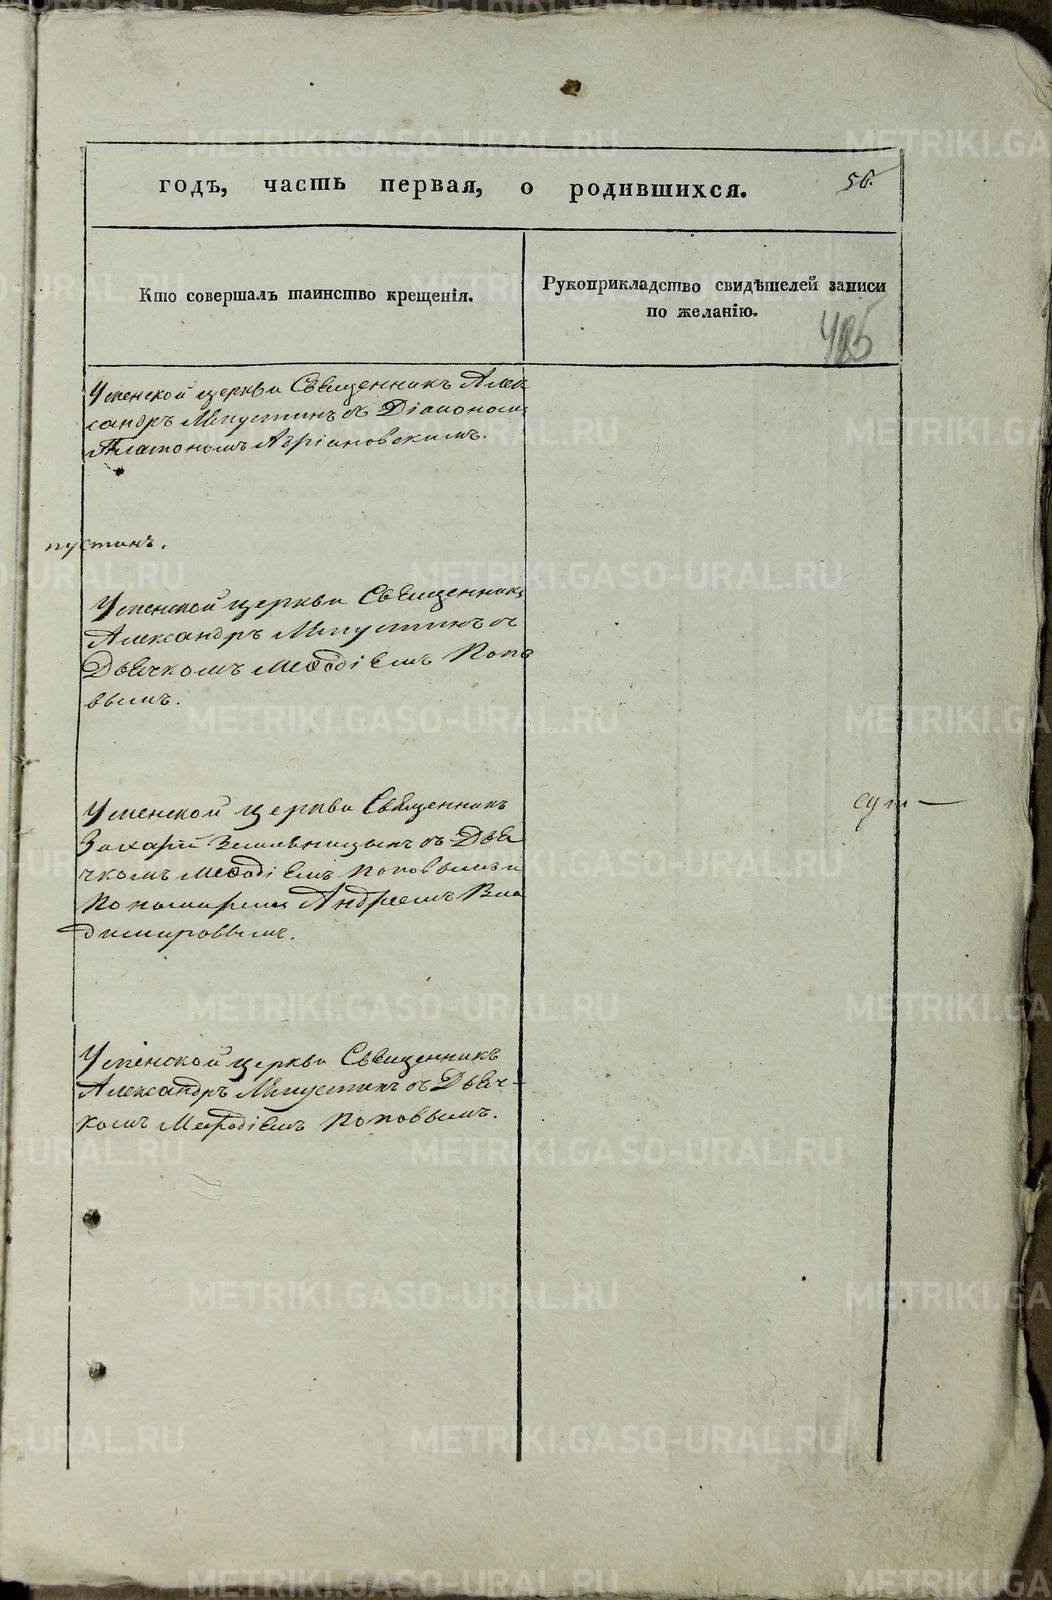 годъ, часть первая, о родившихся.
56.
Кто совершалъ таинство крещенія.
Рукоприкладство свидѣтелей записи
по желанію.
Успенской церкви Священникъ Алек
сандръ съ Діакономъ
Платономъ Адріановскимъ.
пустинъ.
Успенской церкви Священникъ
Александръ съ
Дьячкомъ Меѳодіемъ Попо
вымъ.
Успенской церкви Священникъ
Захарій съ Дья
чкомъ Меѳодіемъ Поповымъ и
Пономаремъ Андреемъ Вла
димировымъ.
Успенской церкви Священникъ
Александръ съ Дьяч-
комъ Меѳодіемъ Поповымъ.
METRIKI.GASO-URAL.RU